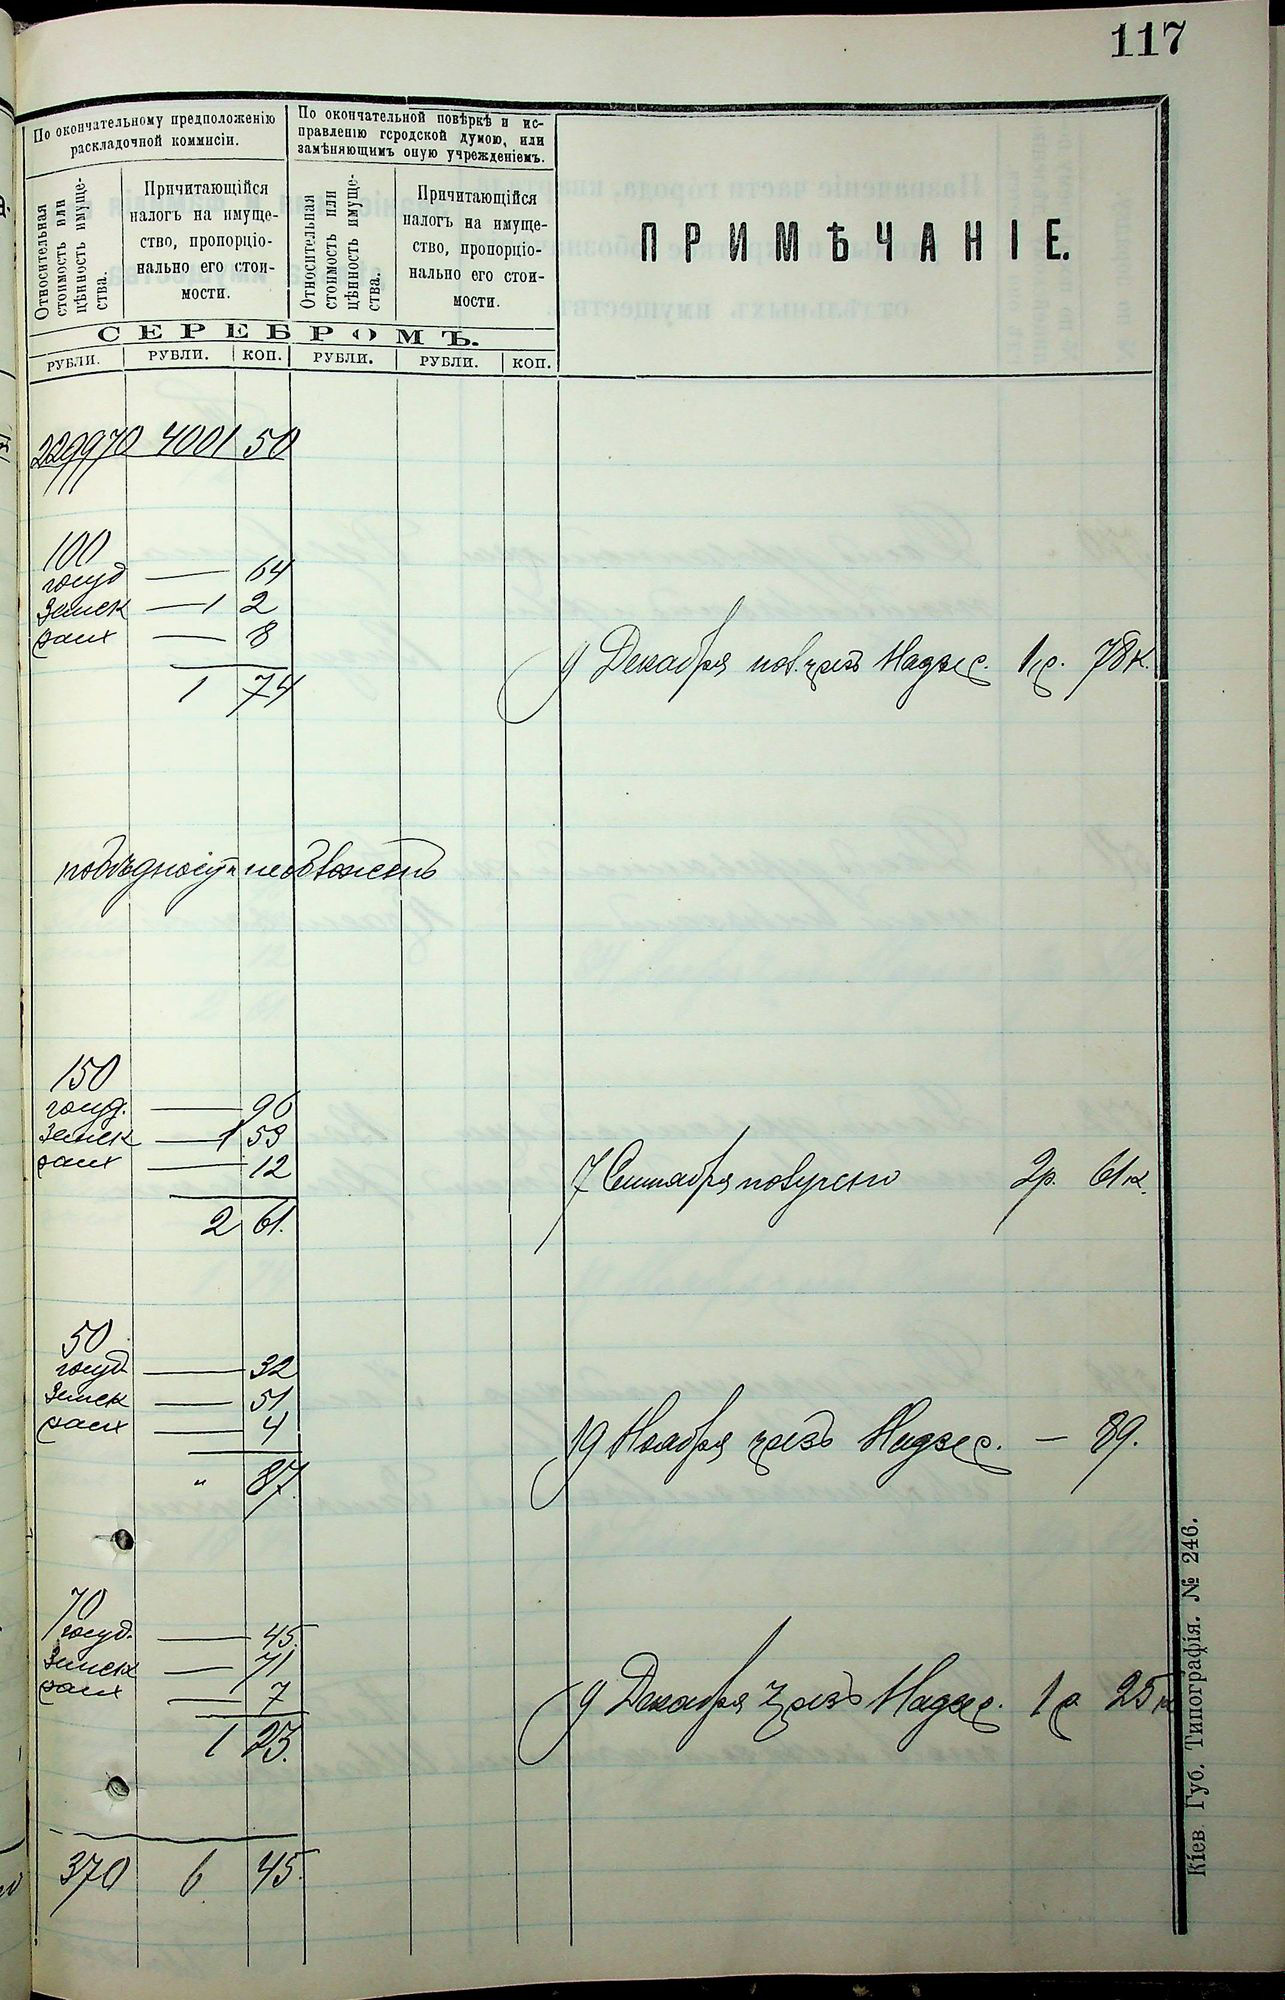 117
По окончательному предположенію
раскладочной коммисіи.
По окончательной повѣркѣ и ис-
правленію городской думою, или
замѣняющимъ оную учрежденіемъ.
Относительная
стоимость или
цѣнность имуще-
ства.
Причитающійся
налогъ на имуще-
ство, пропорціо-
нально его стои-
мости.
Относительная
стоимость или
цѣнность имуще-
ства.
Причитающійся
налогъ на имуще-
ство, пропорціо-
нально его стои-
мости.
ПРИМѢЧАНІЕ.
СЕРЕБРОМЪ.
РУБЛИ. РУБЛИ. КОП. РУБЛИ. РУБЛИ. КОП.
229970 4001 50
100
госуд — 64
Земск — 1 2
— 8
1 74
9 Декабря пол. чрезъ Надзес. 1 р. 78 к.
150
госуд. — 96
Земск — 1 53
— 12
2 61.
7 Сентября получено 2р. 61 к.
50
госуд — 32
Земск — 51
— 4
" 87.
19 Ноября чрезъ Надзес. — 89.
70
госуд. — 45.
Земск — 71
— 7
1 23.
9 Декабря чрезъ Надзес. 1 р 25 к
370 6 45.
Кіев. Губ. Типографія. № 246.